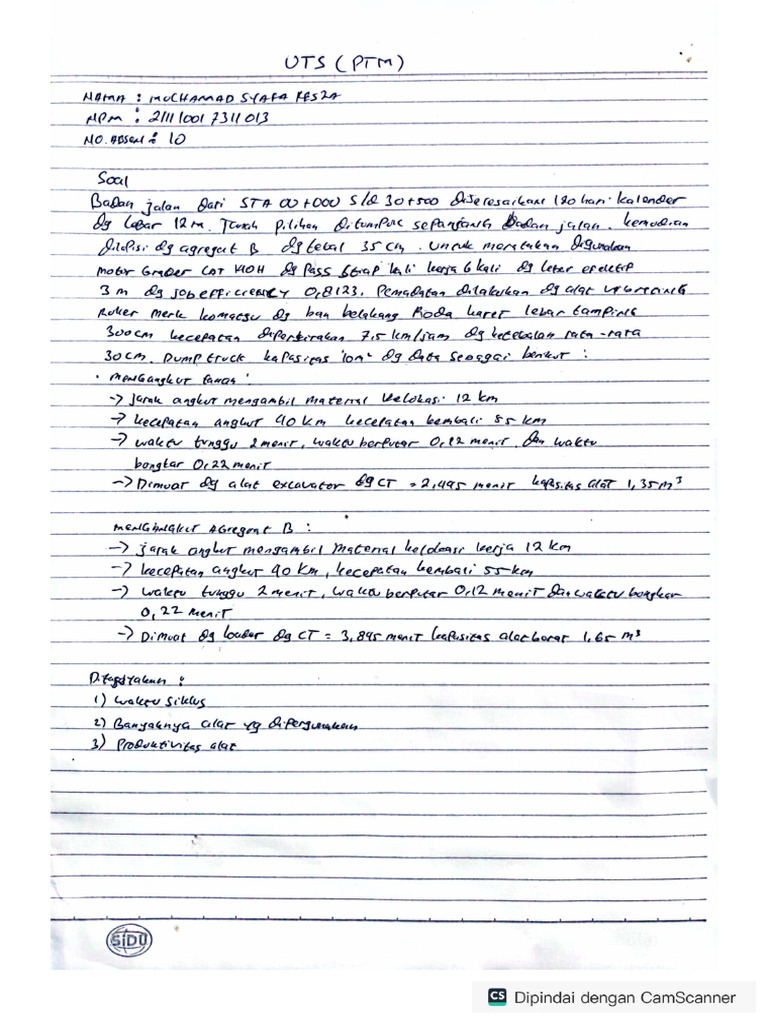 UTS (PTM)
NAMA : MUCHAMAD SYAFA RESZA
NPM : 211110017311013
NO. ABSEN : 10
Soal
Badan jalan dari STA 00+000 S/d 30+500 diselesaikan 120 hari kalender
dg lebar 12 m. Tanah pilihan ditumpuk sepanjang badan jalan. kemudian
dilapisi dg agregat B dg tebal 35 cm. untuk meratakan digunakan
motor Grader CAT 140H dg Pass tiap kali kerja 6 kali dg leber efektif
3 m dg job efficiency 0,8123. Pemadatan dilakukan dg alat
Roller merk komatsu dg ban belakang Roda karet lebar tamping
300 cm kecepatan diperkirakan 7,5 km/jam dg ketebalan rata-rata
30 cm. Dump truck kapasitas 10m³ dg data sebagai berikut :
• Mengangkut tanah :
-> jarak angkut mengambil material kelokasi 12 km
-> kecepatan angkut 40 km kecepatan kembali 55 km
-> waktu tunggu 2 menit, waktu berputar 0,12 menit dan waktu
bongkar 0,22 menit
-> Dimuat dg alat excavator dg CT = 2,495 menit kapasitas alat 1,35 m³
mengangkut Agregat B :
-> jarak angkut mengambil material kelokasi kerja 12 km
-> kecepatan angkut 40 km, kecepatan kembali 55 km
-> waktu tunggu 2 menit, waktu berputar 0,12 menit dan waktu bongkar
0,22 menit
-> Dimuat dg loader dg CT = 3,895 menit kapasitas alat berat 1,65 m³
Ditanyakan :
1) waktu siklus
2) Banyaknya alat yg dipergunakan
3) Produktivitas alat
SiDU
CS Dipindai dengan CamScanner